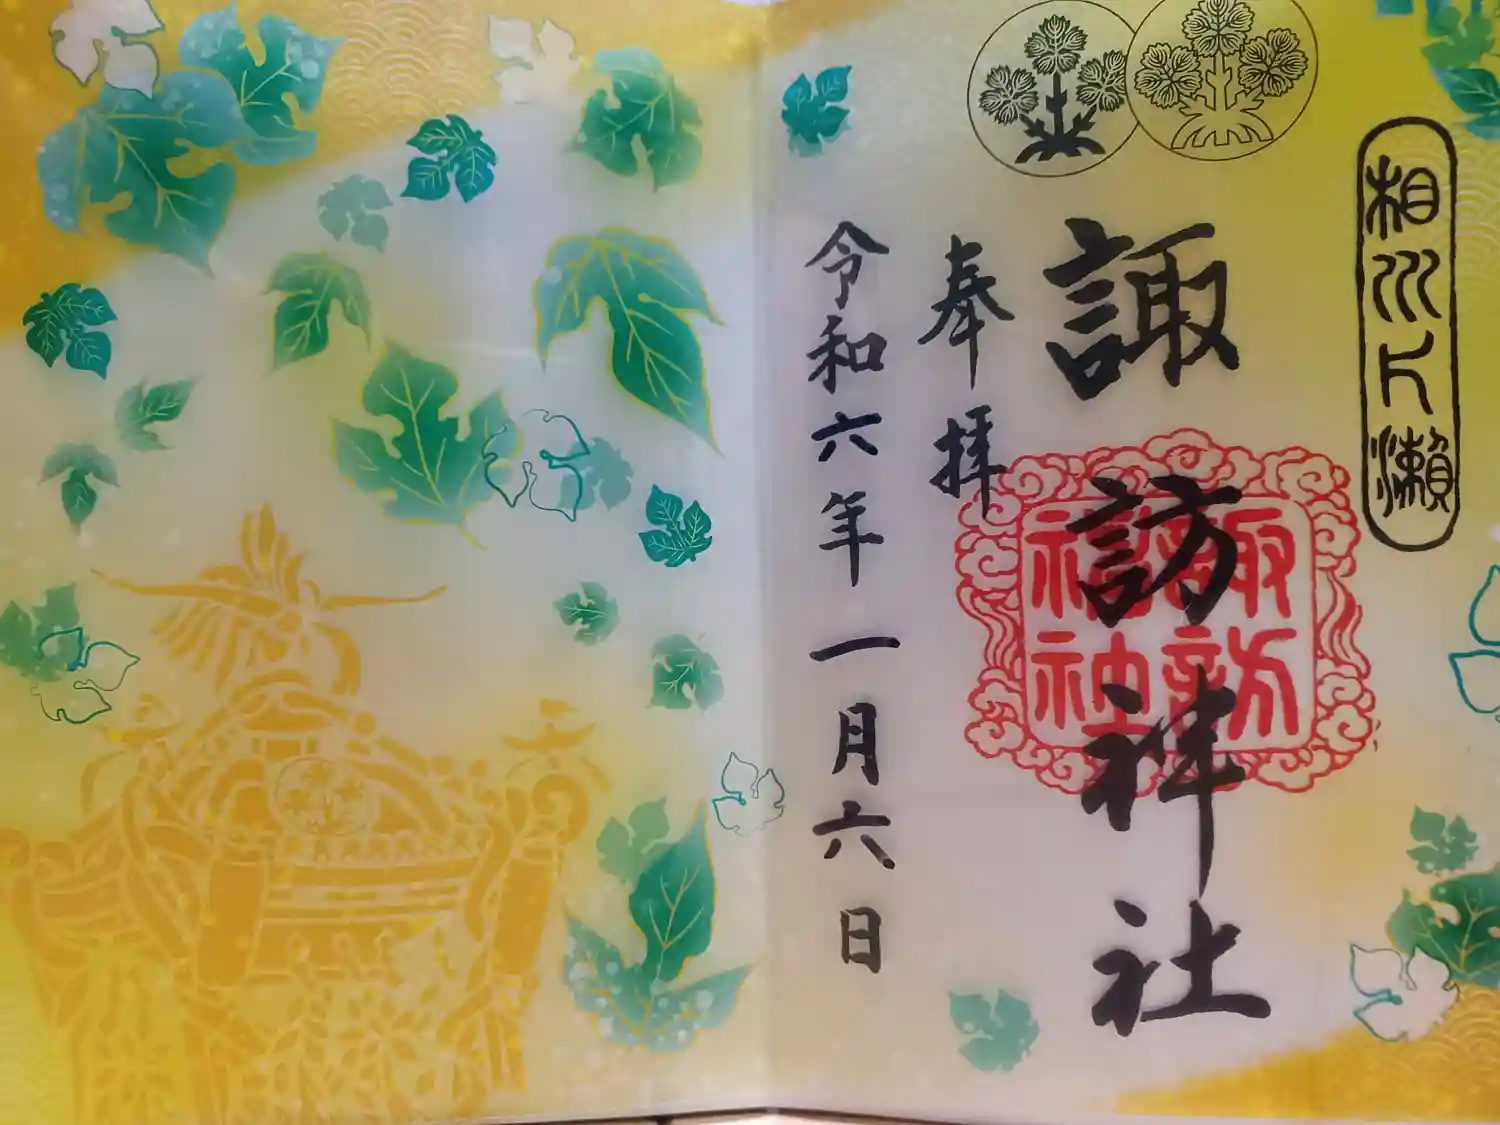 相州片瀬
諏訪神社
諏訪神社
奉拝
令和六年一月六日